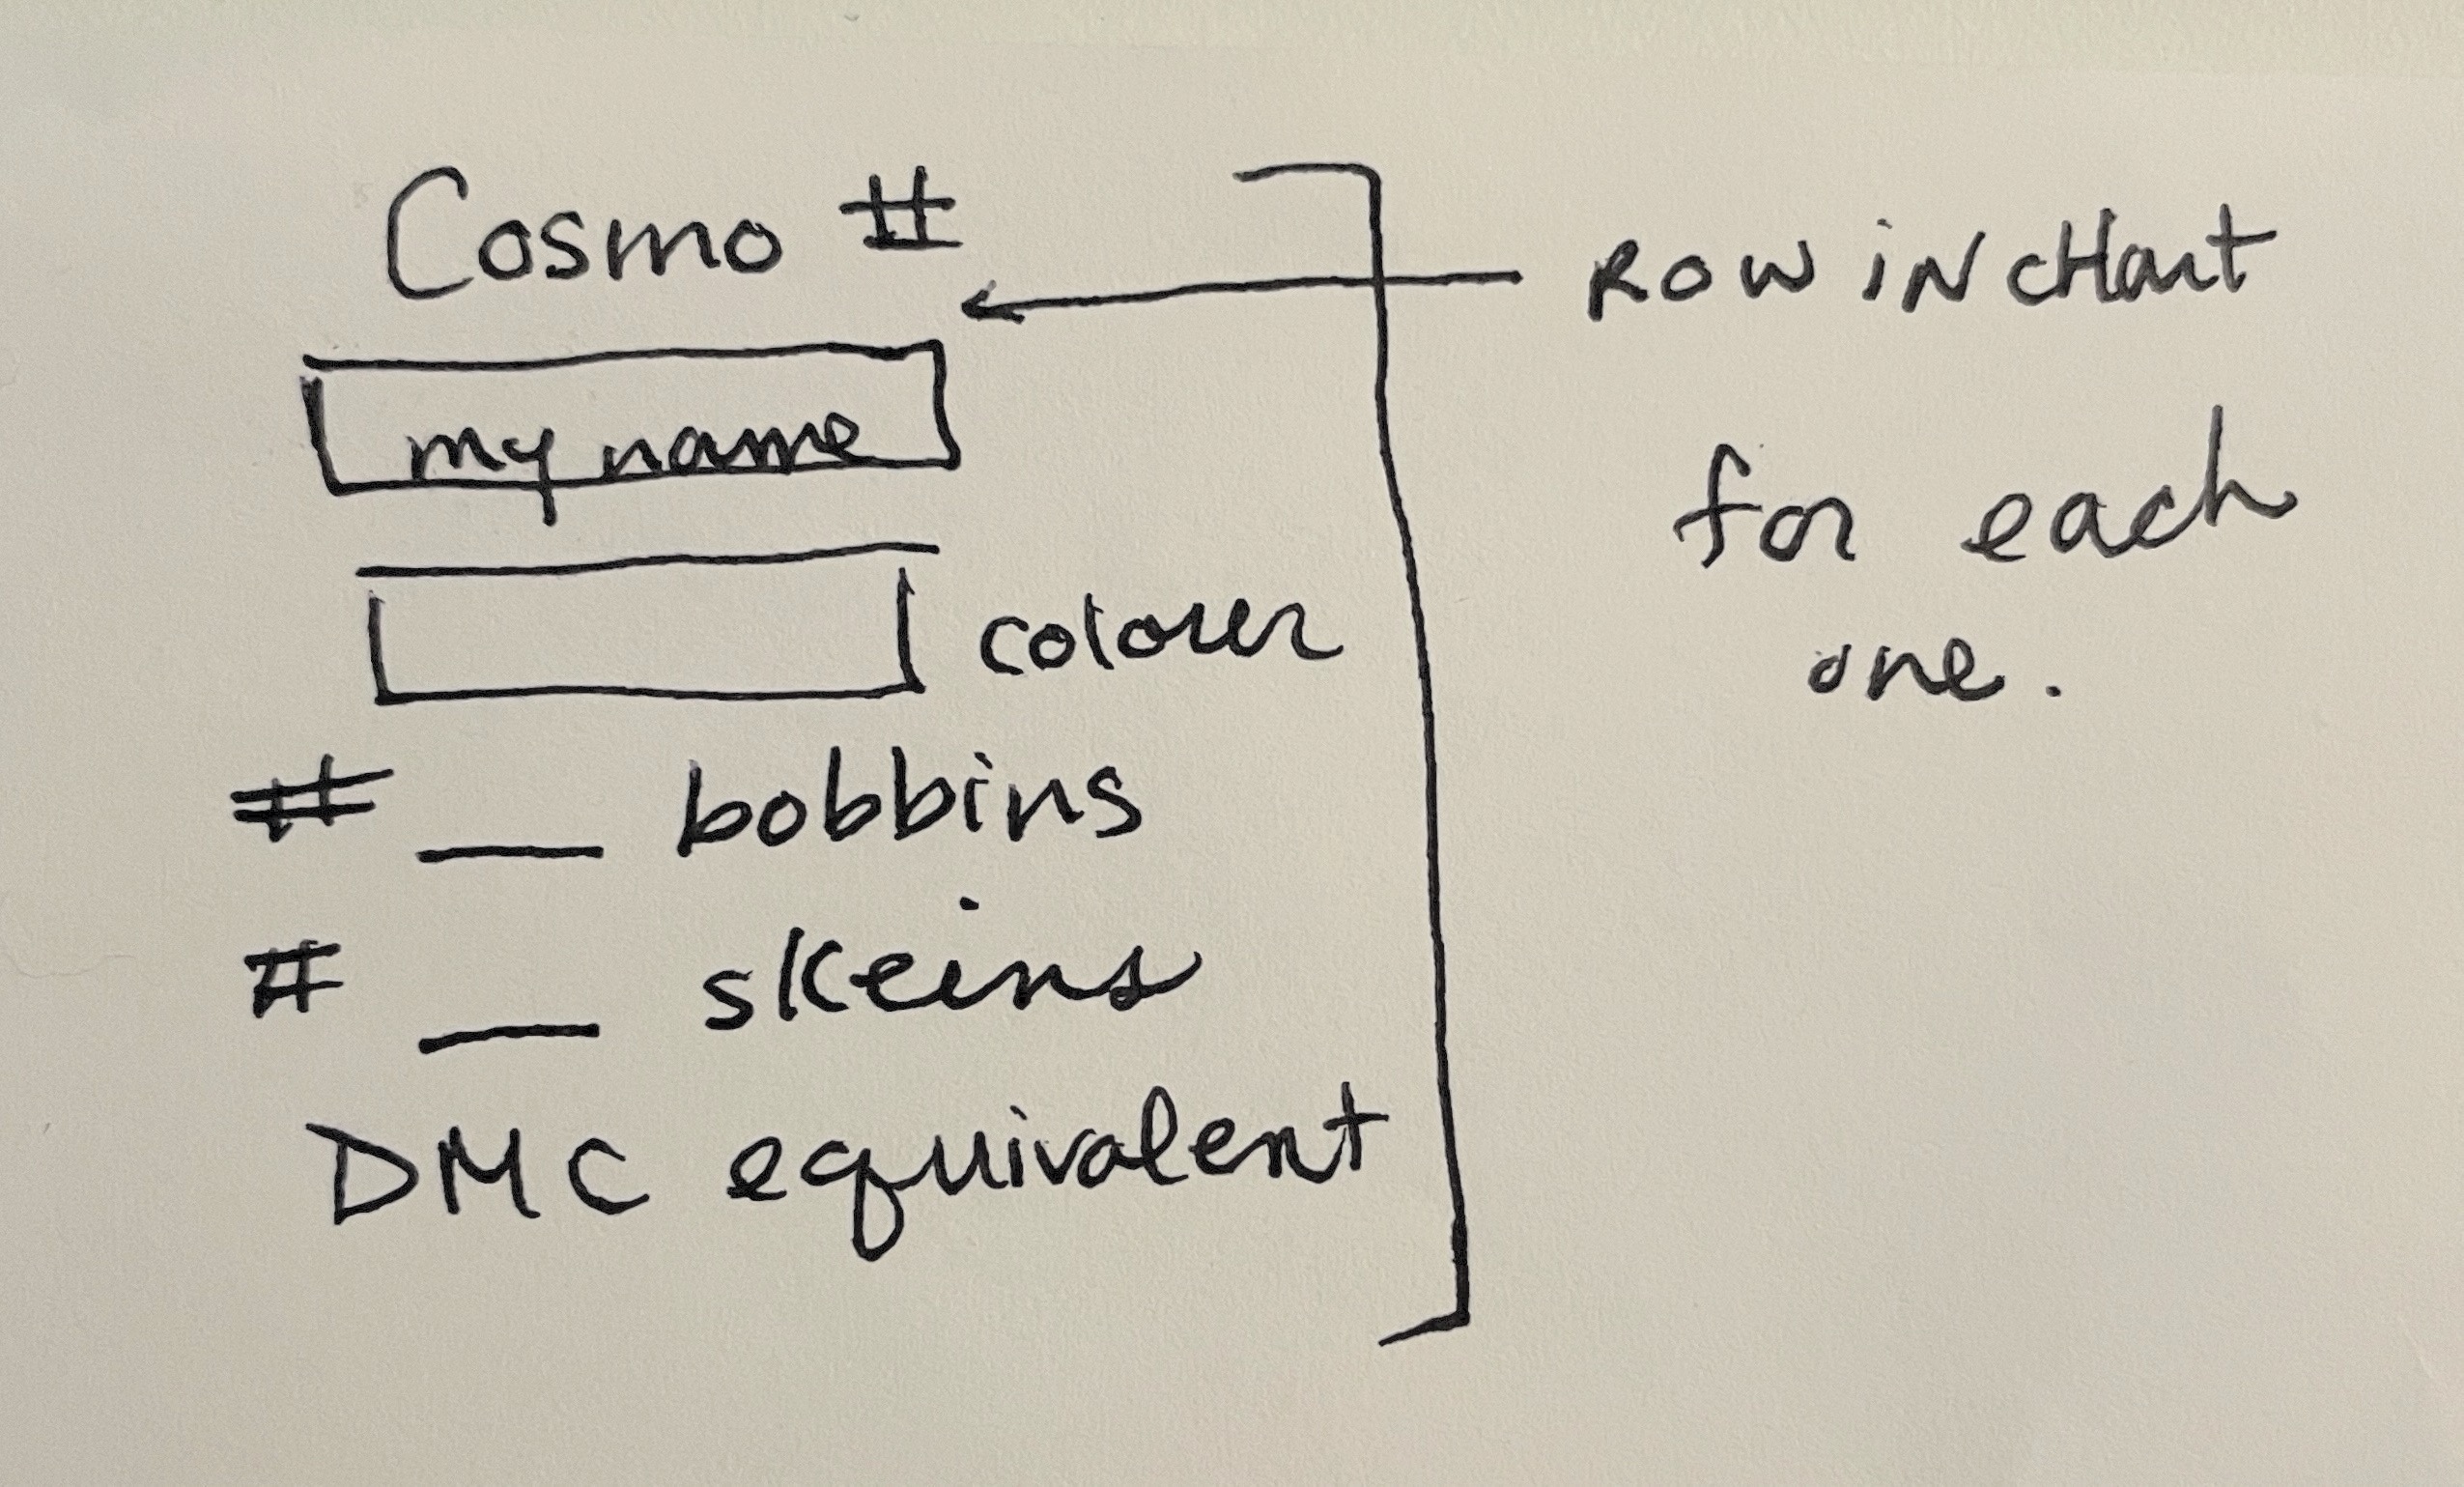 Cosmo #
my name
colour
# __ bobbins
# __ skeins
DMC equivalent
ROW iN cHart
for each
one.